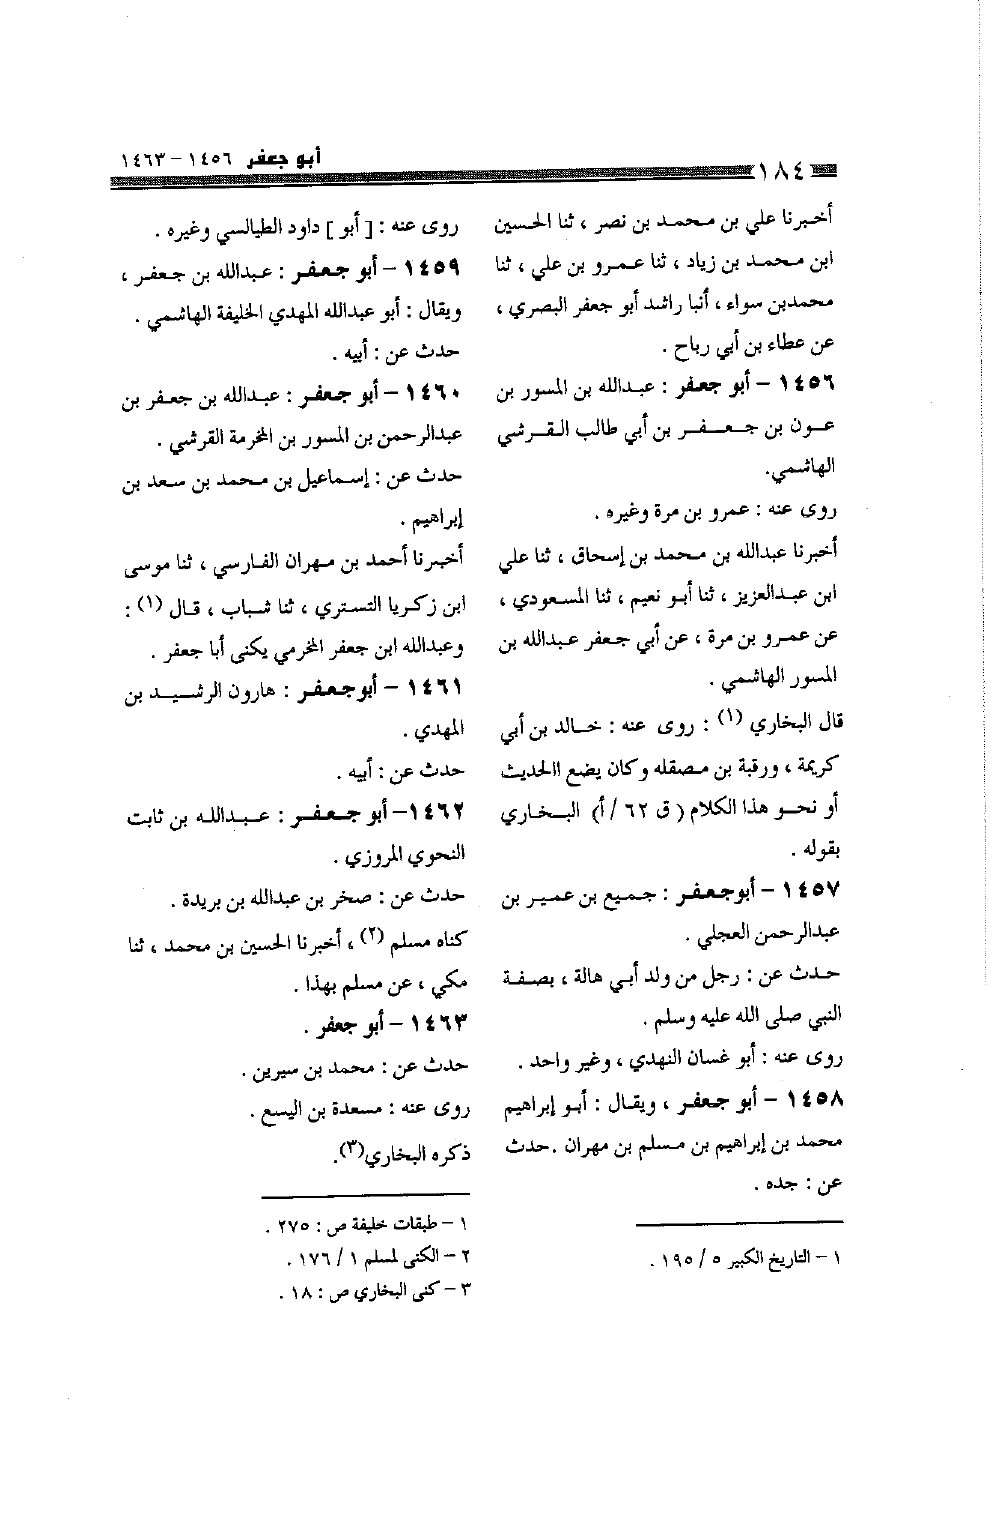 ١٨٤
أبو جعفر ١٤٥٦ – ١٤٦٣
أخبرنا علي بن محمد بن نصر ، ثنا الحسين
ابن محمد بن زياد ، ثنا عمرو بن علي ، ثنا
محمدبن سواء ، أنبا راشد أبو جعفر البصري ،
عن عطاء بن أبي رباح .
١٤٥٦ – أبو جعفر : عبدالله بن المسور بن
عون بن جعفر بن أبي طالب القرشي
الهاشمي.
روى عنه : عمرو بن مرة وغيره .
أخبرنا عبدالله بن محمد بن إسحاق ، ثنا علي
ابن عبدالعزيز ، ثنا أبو نعيم ، ثنا المسعودي ،
عن عمرو بن مرة ، عن أبي جعفر عبدالله بن
المسور الهاشمي .
قال البخاري (١) : روى عنه : خالد بن أبي
كريمة ، ورقبة بن مصقله وكان يضع االحديث
أو نحو هذا الكلام ( ق ٦٢ /أ) البخاري
بقوله .
١٤٥٧ – أبوجعفر : جميع بن عمير بن
عبدالرحمن العجلي .
حدث عن : رجل من ولد أبي هالة ، بصفة
النبي صلى الله عليه وسلم .
روى عنه : أبو غسان النهدي ، وغير واحد .
١٤٥٨ – أبو جعفر ، ويقال : أبو إبراهيم
محمد بن إبراهيم بن مسلم بن مهران .حدث
عن : جده .
١ – التاريخ الكبير ٥ / ١٩٥ .
روى عنه : [ أبو ] داود الطيالسي وغيره .
١٤٥٩ – أبو جعفر : عبدالله بن جعفر ،
ويقال : أبو عبدالله المهدي الخليفة الهاشمي .
حدث عن : أبيه .
١٤٦٠ – أبو جعفر : عبدالله بن جعفر بن
عبدالرحمن بن المسور بن المخرمة القرشي .
حدث عن : إسماعيل بن محمد بن سعد بن
إبراهيم .
أخبرنا أحمد بن مهران الفارسي ، ثنا موسى
ابن زكريا التستري ، ثنا شباب ، قال (١) :
وعبدالله ابن جعفر المخرمي يكنى أبا جعفر .
١٤٦١ – أبوجعفر : هارون الرشيد بن
المهدي .
حدث عن : أبيه .
١٤٦٢– أبو جعفر : عبدالله بن ثابت
النحوي المروزي .
حدث عن : صخر بن عبدالله بن بريدة .
كناه مسلم (٢) ، أخبرنا الحسين بن محمد ، ثنا
مكي ، عن مسلم بهذا .
١٤٦٣ – أبو جعفر .
حدث عن : محمد بن سيرين .
روى عنه : مسعدة بن اليسع .
ذكره البخاري(٣).
١ – طبقات خليفة ص : ٢٧٥ .
٢ – الكنى لمسلم ١ / ١٧٦ .
٣ – كنى البخاري ص : ١٨ .